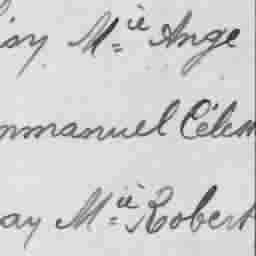 isy M.ie Ange
mmanuel Célem
ay M.ie Robert